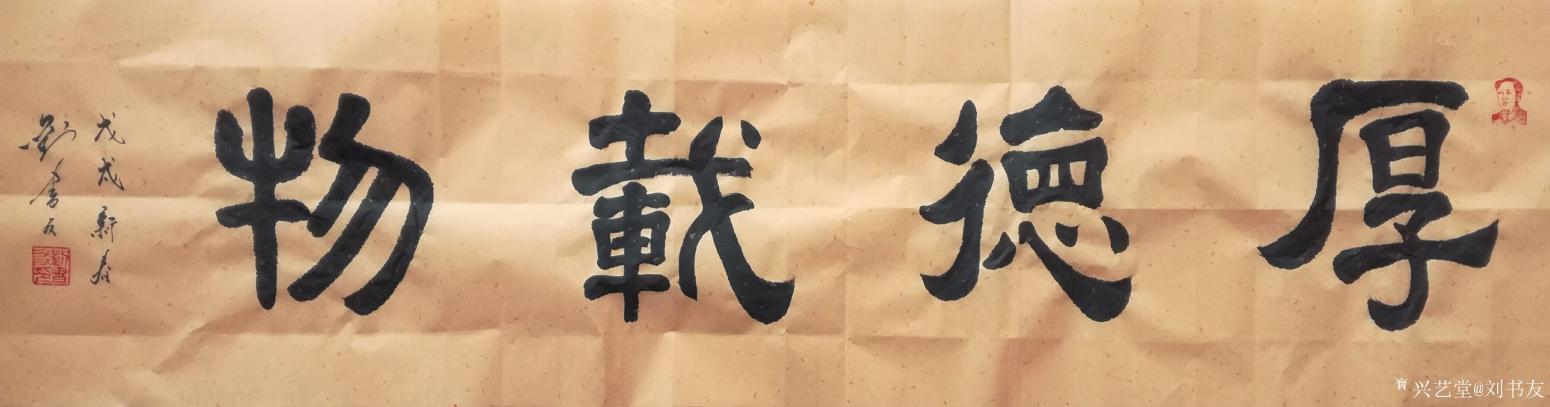 厚德載物
戊戌新春
劉書友
兴艺堂@刘书友